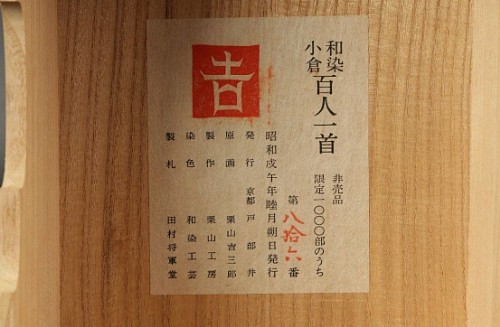 和染
小倉
百人一首
非売品
限定一〇〇〇部のうち
第八拾六番
昭和戊午年睦月朔日発行
発行 京都 戸部井
原画 栗山吉三郎
製作 栗山工房
染色 和染工芸
製札 田村将軍堂
吉